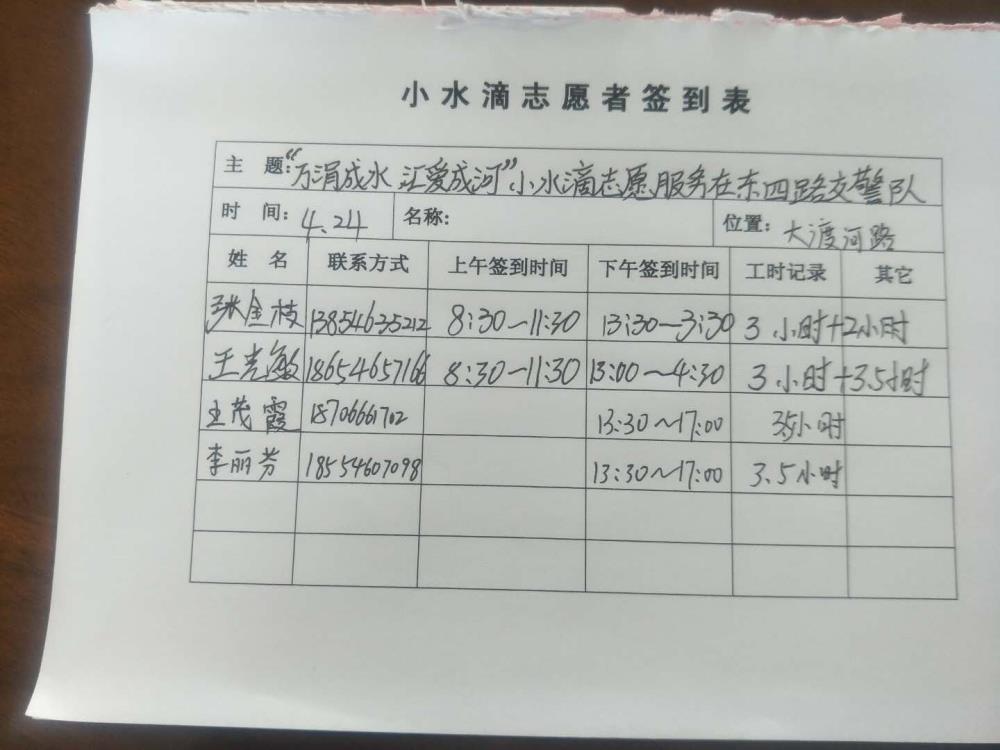 小水滴志愿者签到表
主 题：“万涓成水 汇爱成河”小水滴志愿服务在东四路交警队
时 间：4.24 名称： 位置：大渡河路
姓 名 联系方式 上午签到时间 下午签到时间 工时记录 其它
张金枝 13854635212 8:30~11:30 13:30~3:30 3小时+2小时
王光敏 18654657166 8:30~11:30 13:00~4:30 3小时+3.5小时
王茂霞 18706661702 13:30~17:00 3.5小时
李丽芬 18554607098 13:30~17:00 3.5小时